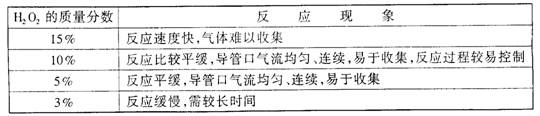 H₂O₂ 的质量分数 反应现象
15% 反应速度快,气体难以收集
10% 反应比较平缓,导管口气流均匀、连续,易于收集,反应过程较易控制
5% 反应平缓,导管口气流均匀、连续,易于收集
3% 反应缓慢,需较长时间